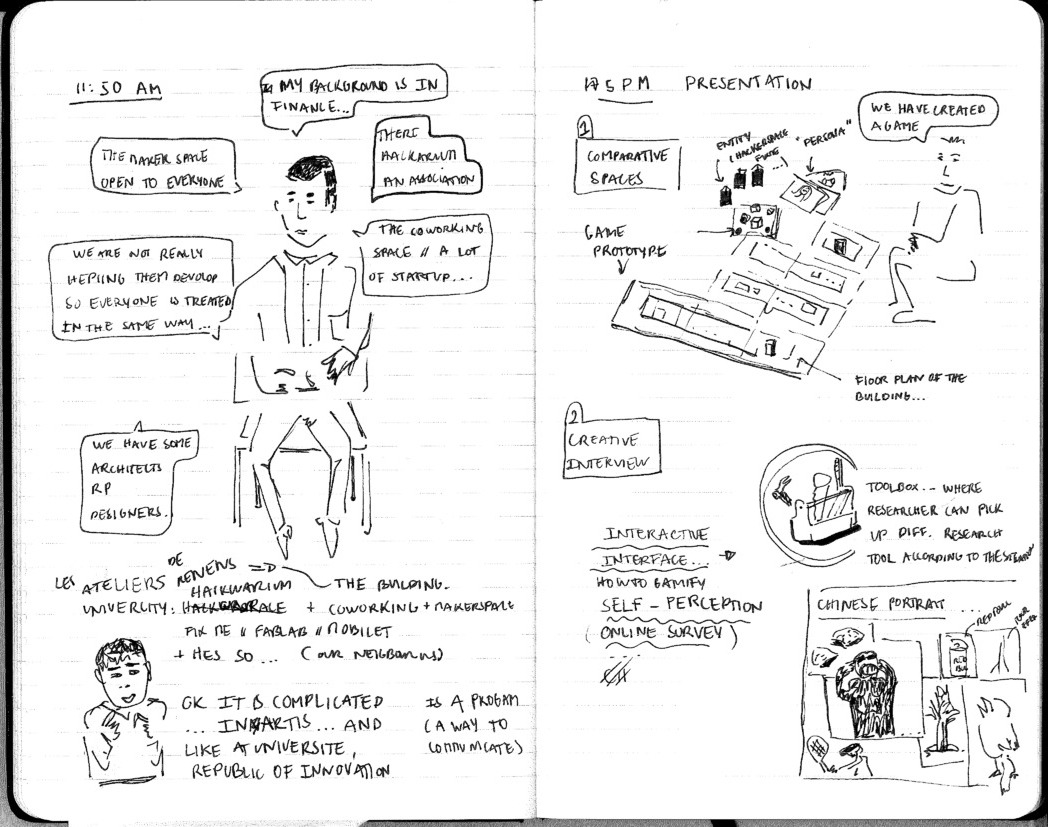 11:50 AM
MY BACKGROUND IS IN
FINANCE...
THE MAKER SPACE
OPEN TO EVERYONE
THERE
HACKARIUM
AN ASSOCIATION
WE ARE NOT REALLY
HEPLING THEM DEVOLOP
SO EVERYONE IS TREATED
IN THE SAME WAY...
THE COWORKING
SPACE // A LOT
OF STARTUP...
WE HAVE SOME
ARCHITECTS
RP
DESIGNERS.
LES ATELIERS DE RENENS
THE BUILDING.
UNIVERCITY: HAIKWARIUM + COWORKING + MAKERSPACE
FIX ME // FABLAB // MOBILET
+ HES SO ... (OUR NEIGBORHS)
OK IT IS COMPLICATED
... INARTIS ... AND
LIKE A UNIVERSITE,
REPUBLIC OF INNOVATION
IS A PROGRAM
(A WAY TO
COMMUNICATE)
5 PM PRESENTATION
WE HAVE CREATED
A GAME
1
COMPARATIVE
SPACES
ENTITY
(HACKERSPACE
FIXME
...)
"PERSONA"
GAME
PROTOTYPE
FLOOR PLAN OF THE
BUILDING...
2
CREATIVE
INTERVIEW
TOOLBOX... WHERE
RESEARCHER CAN PICK
UP DIFF. RESEARCH
TOOL ACCORDING TO THE SITUATION
INTERACTIVE
INTERFACE...
HOW TO GAMIFY
SELF-PERCEPTION
(ONLINE SURVEY)
...
CHINESE PORTRAIT ...
REDBULL
RED
BULL